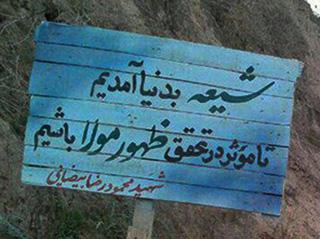 شیعه بدنیا آمدیم
تا موثر در تحقق ظهور مولا باشیم
شهید محمودرضا بیضایی